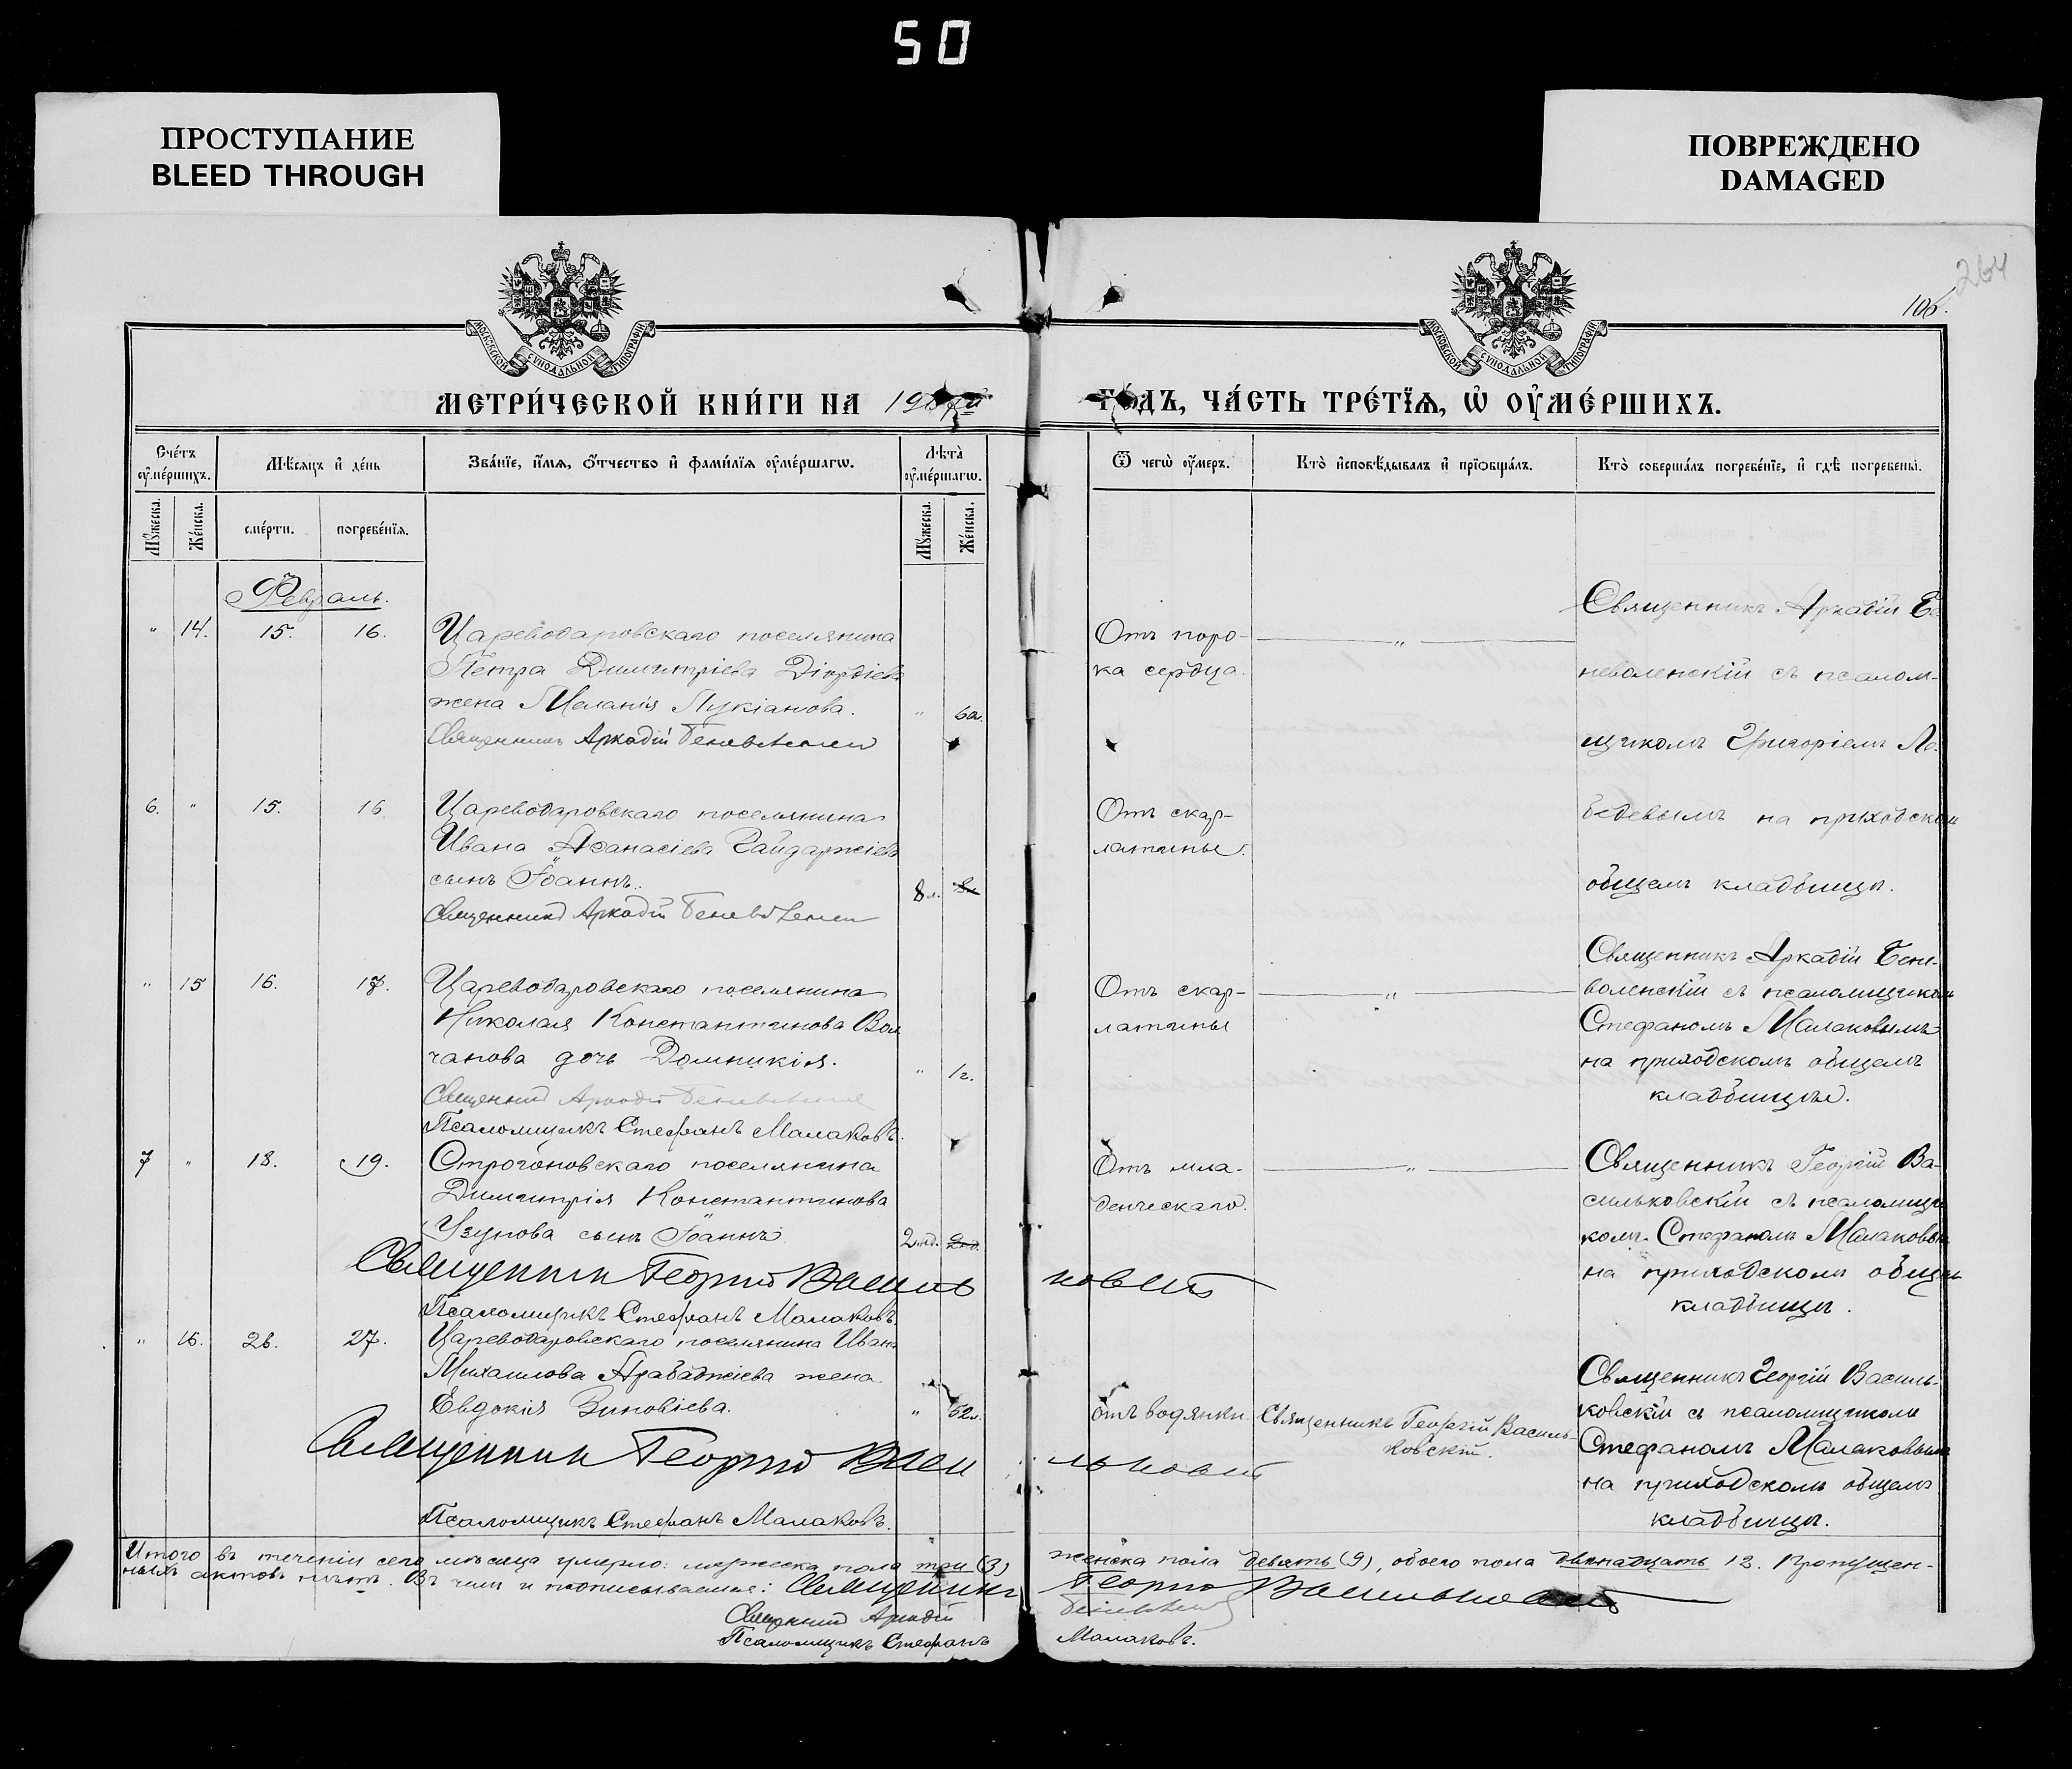 50
ПРОСТУПАНИЕ
BLEED THROUGH
ПОВРЕЖДЕНО
DAMAGED
264
106.
МОСКОВСКОЙ СѴНОДАЛЬНОЙ ТИПОГРАФІИ
МОСКОВСКОЙ СѴНОДАЛЬНОЙ ТИПОГРАФІИ
МЕТРИ́ЧЕСКОЙ КНИ́ГИ НА 190
ГО́ДЪ, ЧА́СТЬ ТРЕ́ТЇѦ, Ѡ҆ ОУ҆МЕ́РШИХЪ.
Сче́тъ оу҆ме́ршихъ.
Мѣ́сяцъ и҆ де́нь
Зва́нїе, и҆́мѧ, ѻ҆́тчество и҆ фами́лїѧ оу҆ме́ршагѡ.
Лѣ́та оу҆ме́ршагѡ.
Ѿ чегѡ̀ оу҆́меръ.
Кто̀ и҆сповѣ́дывалъ и҆ прїѡбща́лъ.
Кто̀ соверша́лъ погребе́нїе, и҆ гдѣ̀ погребены̀.
Мꙋ́жеска.
Же́нска.
сме́рти.
погребе́нїѧ.
Мꙋ́жеска.
Же́нска.
Февраль.
" 14. 15. 16.
Цареводаровскаго поселянина
Петра Димитріева Діордіева
жена Меланія Лукіанова.
Священникъ Аркадій Беневоленскій
" 60.
Отъ поро-
ка сердца.
"
Священникъ Аркадій Бе
неволенскій съ псалом-
щикомъ Григоріемъ Ле-
бедевымъ на приходском
общемъ кладбищѣ.
6. " 15. 16
Цареводаровскаго поселянина
Ивана Аѳанасіева Гайдаржіева
сынъ Іоаннъ.
Священникъ Аркадій Беневоленскій
8 л. 8л
Отъ скар-
латины.
" 15 16. 17.
Цареводаровскаго поселянина
Николая Константинова Вол
чанова дочь Домникія.
Священникъ Аркадій Беневоленскій
Псаломщикъ Стефанъ Малаковъ.
" 1г.
Отъ скар-
латины
"
Священникъ Аркадій Бене-
воленскій съ псаломщикомъ
Стефаномъ Малаковымъ
на приходскомъ общемъ
кладбищѣ.
7 " 18. 19.
Строгоновскаго поселянина
Димитрія Константинова
Узунова сынъ Іоаннъ
2 нд. 2нд.
Священникъ Георгій Василь
ковскій
Псаломщикъ Стефанъ Малаковъ.
Отъ мла-
денческаго.
"
Священникъ Георгій Ва-
сильковскій съ псаломщи
комъ Стефаномъ Малаковым
на приходскомъ общемъ
кладбищѣ.
" 16. 26. 27.
Цареводаровскаго поселянина Ивана
Михаилова Арабаджіева жена
Евдокія Зиновіева.
" 52л.
Священникъ Георгій Васи
льковскій
Псаломщикъ Стефанъ Малаковъ.
отъ водянки
Священникъ Георгій Василь-
ковскій.
Священникъ Георгій Василь-
ковскій съ псаломщикомъ
Стефаномъ Малаковымъ
на приходскомъ общемъ
кладбищѣ.
Итого въ теченіи сего мѣсяца умерло: мужеска пола три (3) женска пола девять (9), обоего пола двенадцать 12. Пропущен-
ныхъ актовъ нѣтъ. Въ чемъ и подписываемся: Священникъ Георгій Васильковскій
Священникъ Аркадій Беневоленскій
Псаломщикъ Стефанъ Малаковъ.